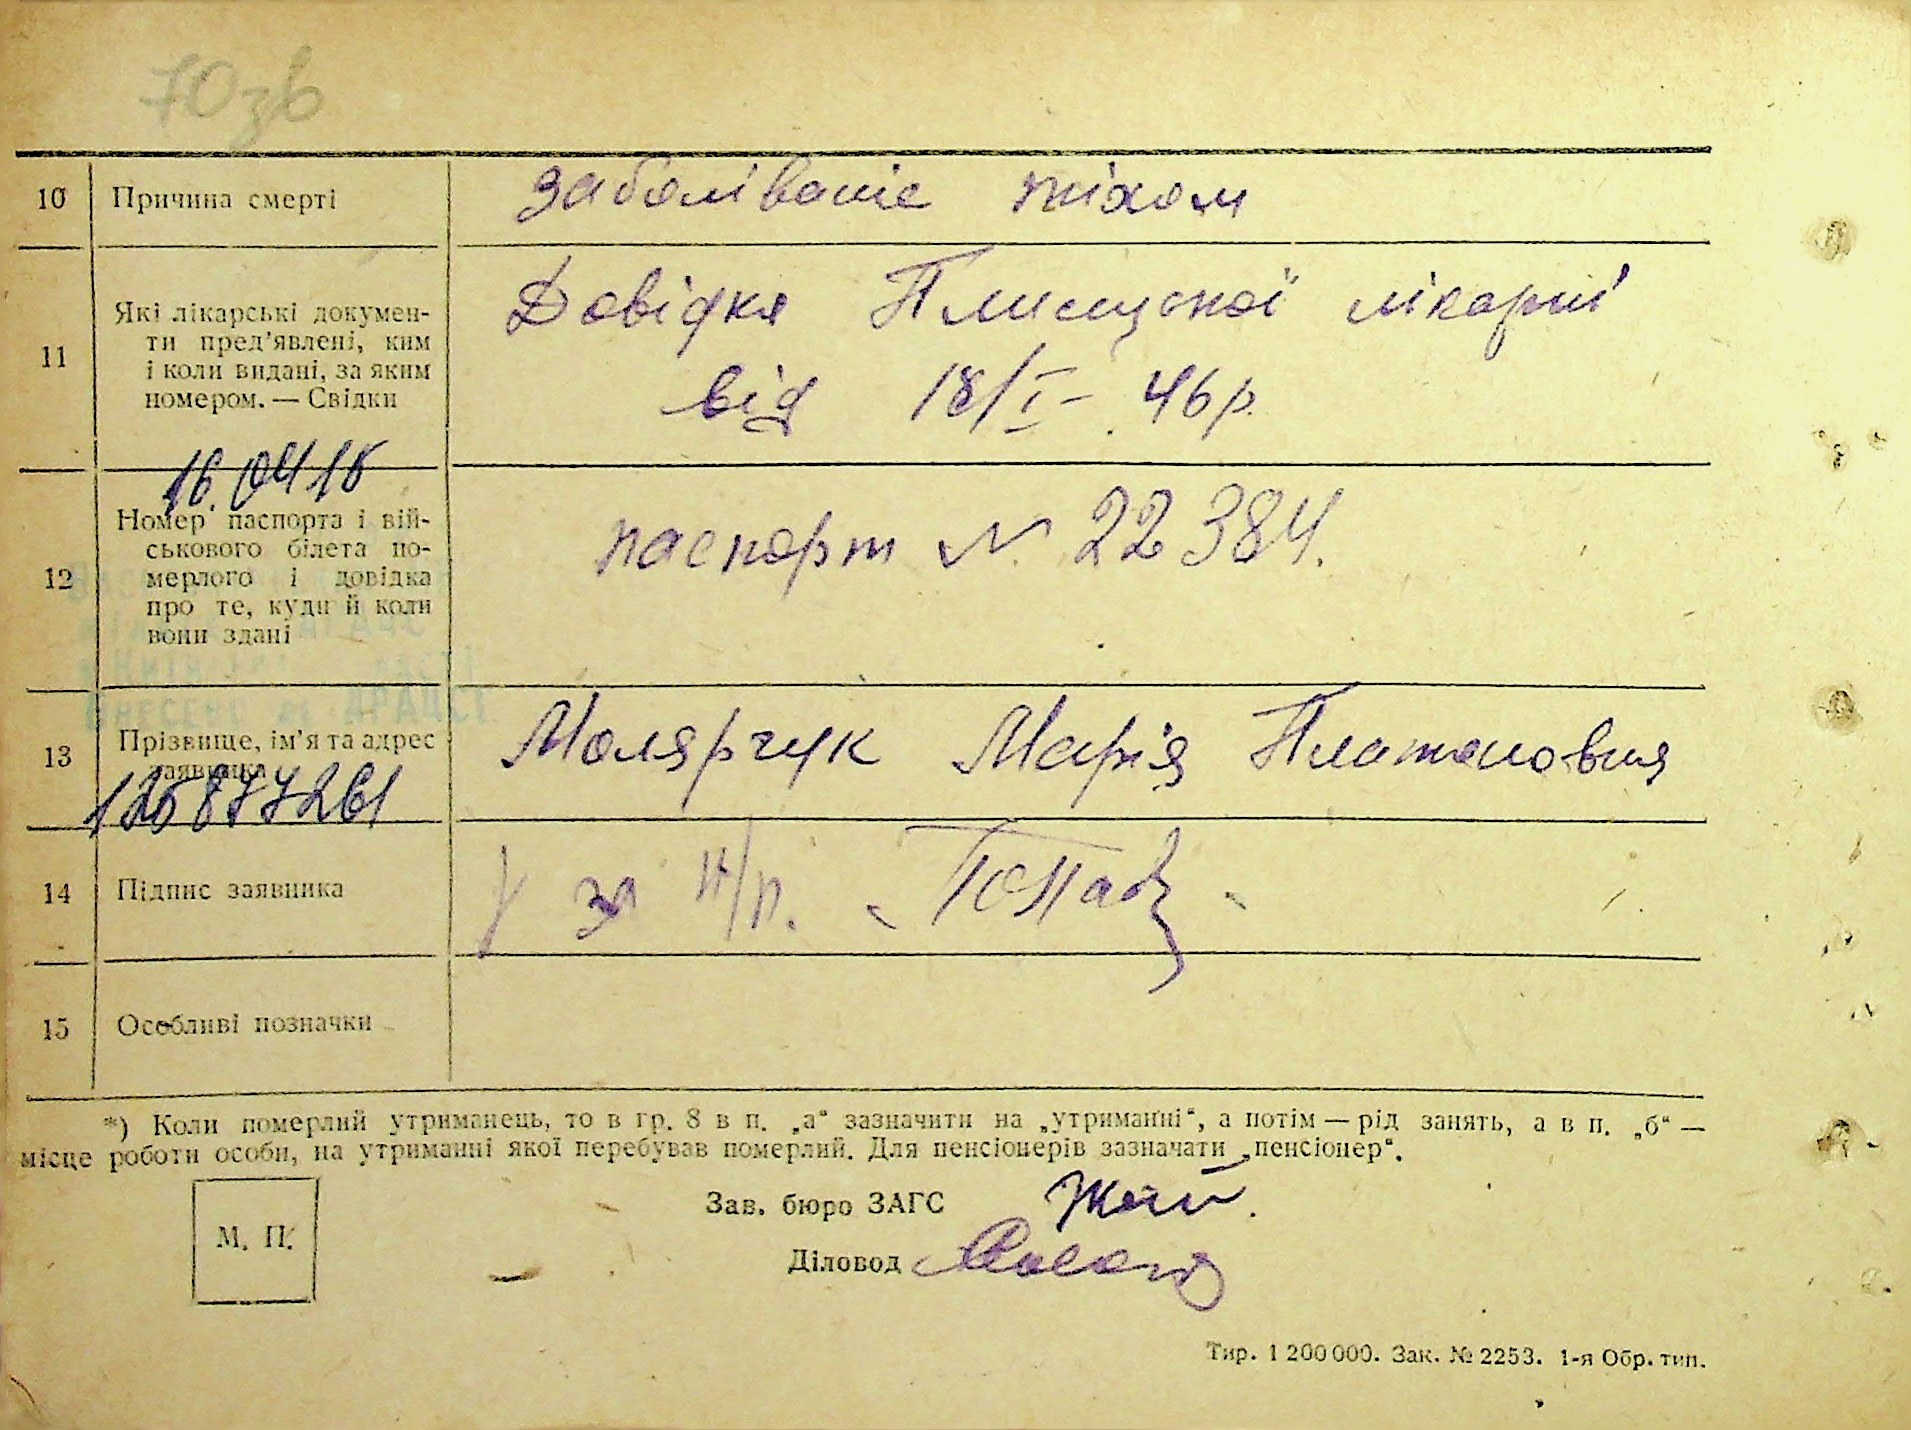 70зв
10 Причина смерті заболіваніе тіхом
11 Які лікарські докумен-
ти пред’явлені, ким
і коли видані, за яким
номером. — Свідки
Довідка Плисцької лікарні
від 18/I – 46 р.
16.04.15
12 Номер паспорта і вій-
ськового білета по-
мерлого і довідка
про те, куди й коли
вони здані
паспорт № 22384.
13 Прізвище, ім’я та адрес
заявника
Молярчук Марія Платоновня
14 Підпис заявника за н/п.
15 Особливі позначки
*) Коли померлий утриманець, то в гр. 8 в п. „а“ зазначити на „утриманні“, а потім — рід занять, а в п. „б“ —
місце роботи особи, на утриманні якої перебував померлий. Для пенсіонерів зазначати „пенсіонер“.
М. П.
Зав. бюро ЗАГС
Діловод
Тир. 1 200 000. Зак. № 2253. 1-я Обр. тип.